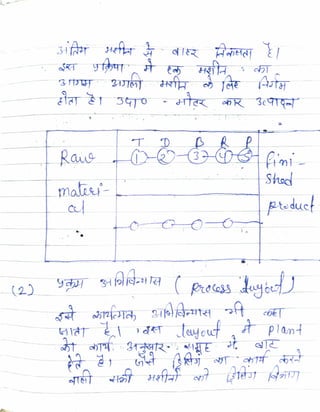 अंतिम मशीन से बाहर निकलता है।
इस प्रक्रिया में एक मशीन का
अगली मशीन के लिए निर्गम
होता है। उदा० - मोटर कार उत्पादन
T D B R P
Raw materi- al
1 2 3 4 5
Fini- shed product
(2) प्रक्रम अभिविन्यास (process layout)
इसे कार्यात्मक अभिविन्यास भी कहा
जाता है। इस layout में plant
को कार्य अनुसार समूह में बांट
देते हैं। जैसे ड्रिलिंग का कार्य करने
वाली सभी मशीनों को ड्रिलिंग विभाग